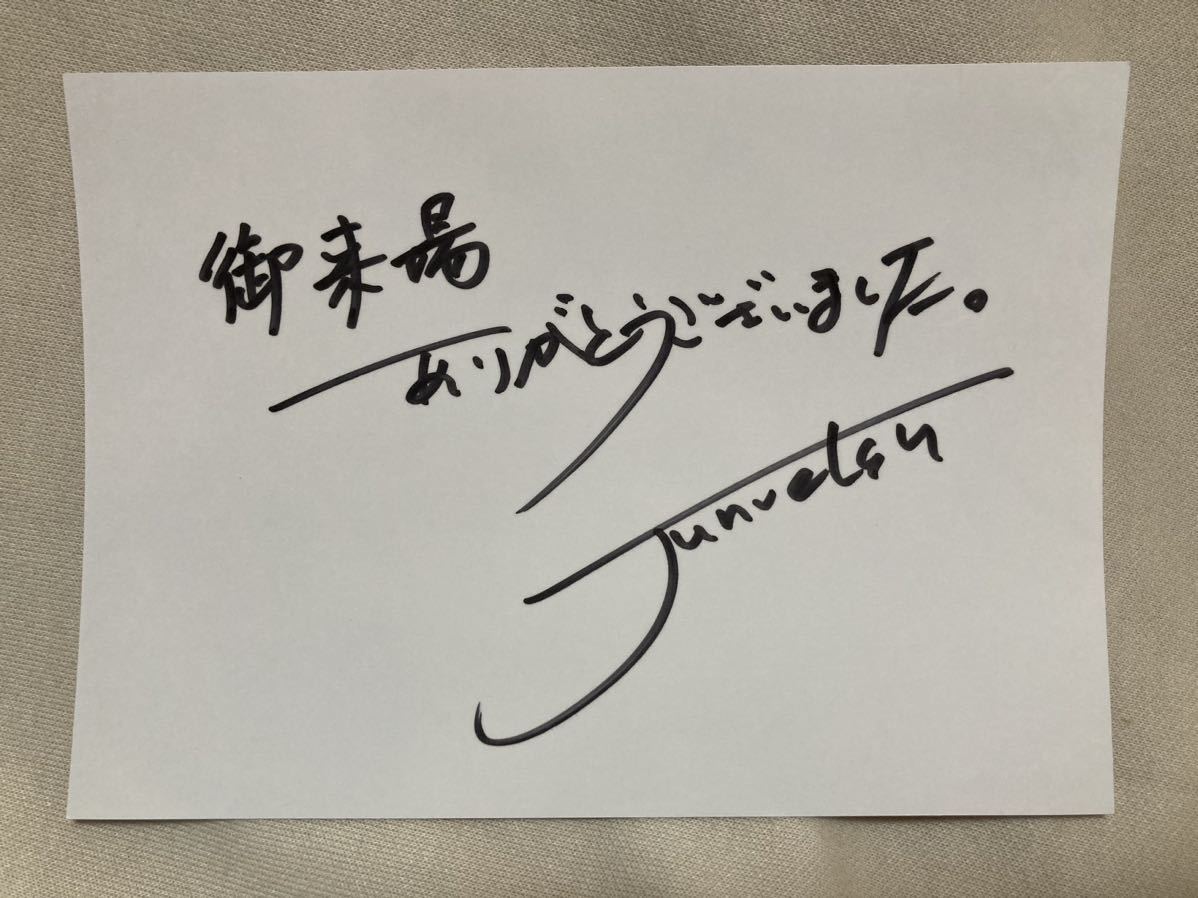 御来場
ありがとうございました。